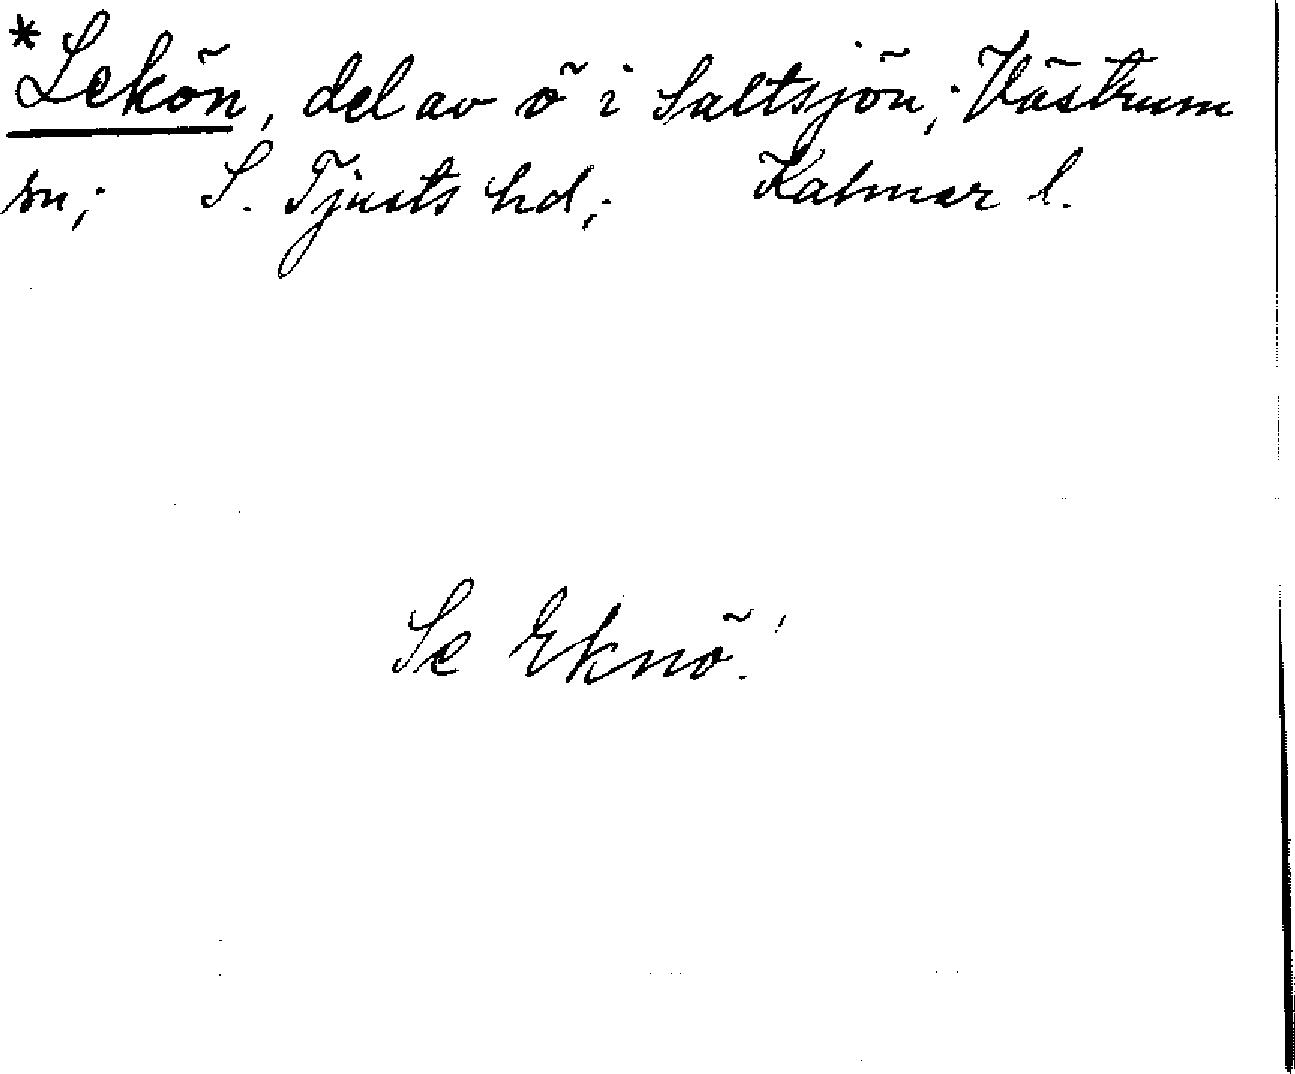 *Lekön, del av ö i Saltsjön; Västrum
sn; S. Tjusts hd; Kalmar l.
Se Eknö!